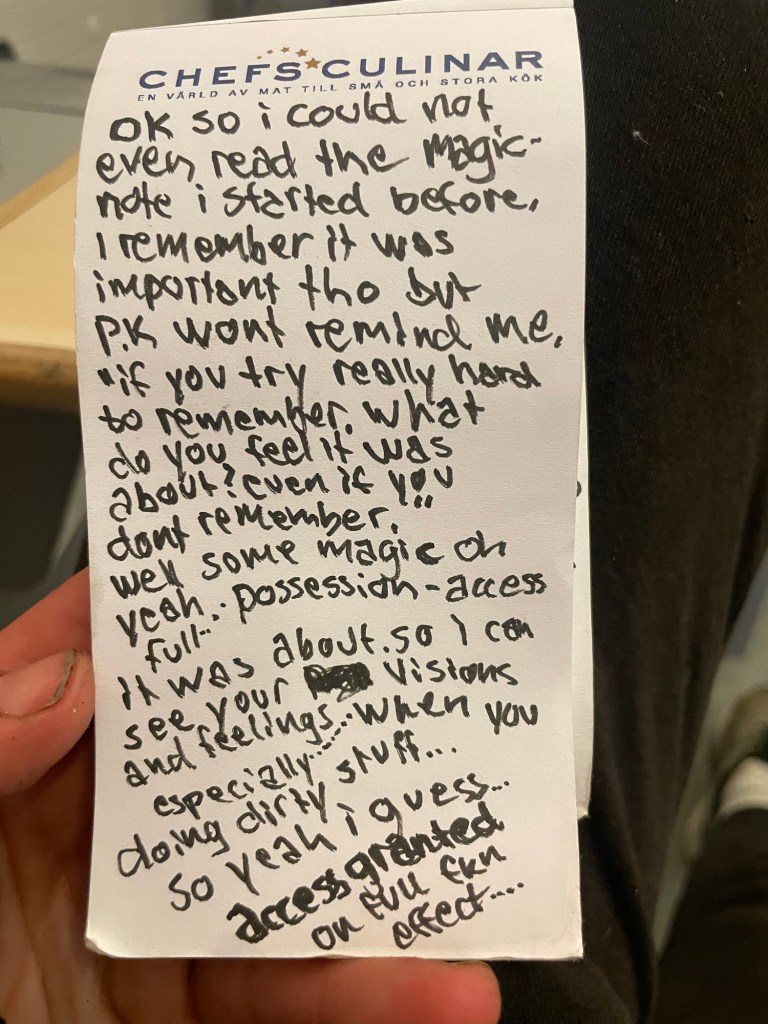 CHEFS CULINAR
EN VÄRLD AV MAT TILL SMÅ OCH STORA KÖK
OK so i could not
even read the magic-
note i started before,
i remember it was
important tho but
P.K wont remind me.
"if you try really hard
to remember. what
do you feel it was
about? even if you
dont remember."
well some magic oh
yeah.. possession-access
full..
it was about. so i can
see your visions
and feelings... when you
especially......
doing dirty stuff...
so yeah i guess...
access granted
on full fkn
effect....